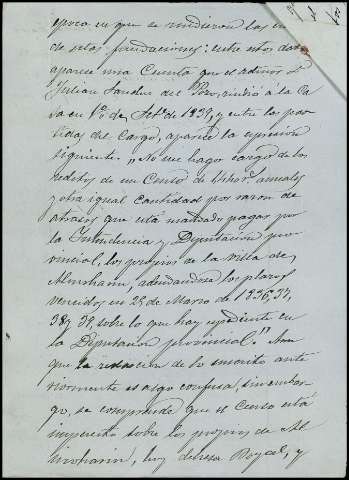 epoca en que se rindieron las
de estas fundaciones: entre otos datos
aparece una Cuenta que el adinor D
Julian Sanchez del Pozo, rindió á la Ca
sa en 1º de Setº de 1839, y entre las par
tidas del Cargo, aparece la espresion
siguiente "No me hago cargo de los
reditos de un Censo de anuales
y otra igual cantidad por razon de
atrasos que está mandado pagar por
la Intendencia y Diputación pro
vincial, los propios de la villa de
Almoharin, adeudandose los plazos
vencidos en 25 de Marzo de 1836, 37,
38 y 39, sobre lo que hay espediente en
la Diputación provincial." Aun
que la redaccion de lo inscrito ante
riormente es algo confusa, sin embar
go, se comprende que el Censo está
impuesto sobre los propios de Al
moharin, hoy dehesa Boyal, y